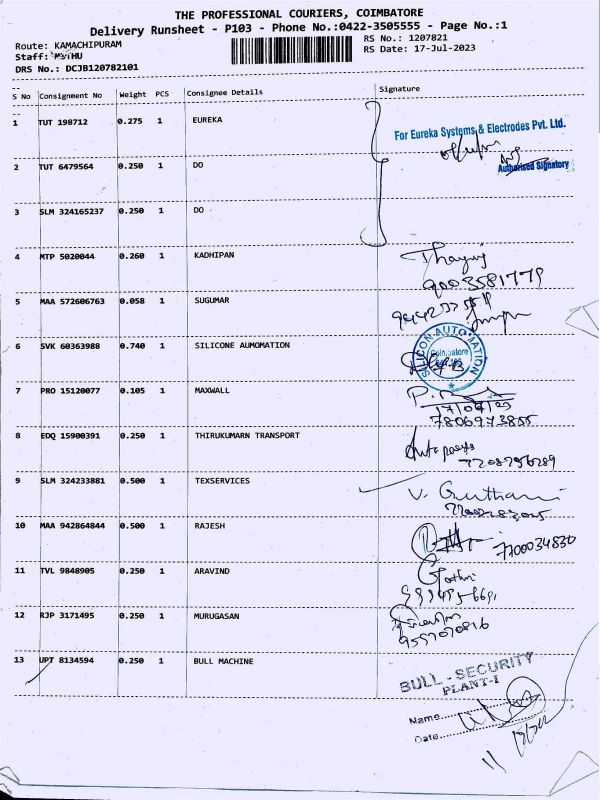 THE PROFESSIONAL COURIERS, COIMBATORE
Delivery Runsheet - P103 - Phone No.:0422-3505555 - Page No.:1
Route: KAMACHIPURAM RS No.: 1207821
Staff: MUTHU RS Date: 17-Jul-2023
DRS No.: DCJB120782101
S No Consignment No Weight PCS Consignee Details Signature
1 TUT 198712 0.275 1 EUREKA
For Eureka Systems & Electrodes Pvt. Ltd.
Authorised Signatory
2 TUT 6479564 0.250 1 DO
3 SLM 324165237 0.250 1 DO
4 MTP 5020044 0.260 1 KADHIPAN
9003581779
5 MAA 572606763 0.058 1 SUGUMAR
6 SVK 60363988 0.740 1 SILICONE AUMOMATION
SILICON AUTOMATION
Coimbatore
7 PRO 15120077 0.105 1 MAXWALL
17/07/23
7806973855
8 EDQ 15900391 0.250 1 THIRUKUMARN TRANSPORT
9 SLM 324233881 0.500 1 TEXSERVICES
10 MAA 942864844 0.500 1 RAJESH
11 TVL 9848905 0.250 1 ARAVIND
12 RJP 3171495 0.250 1 MURUGASAN
13 UPT 8134594 0.250 1 BULL MACHINE
BULL - SECURITY
PLANT-I
Name
Date